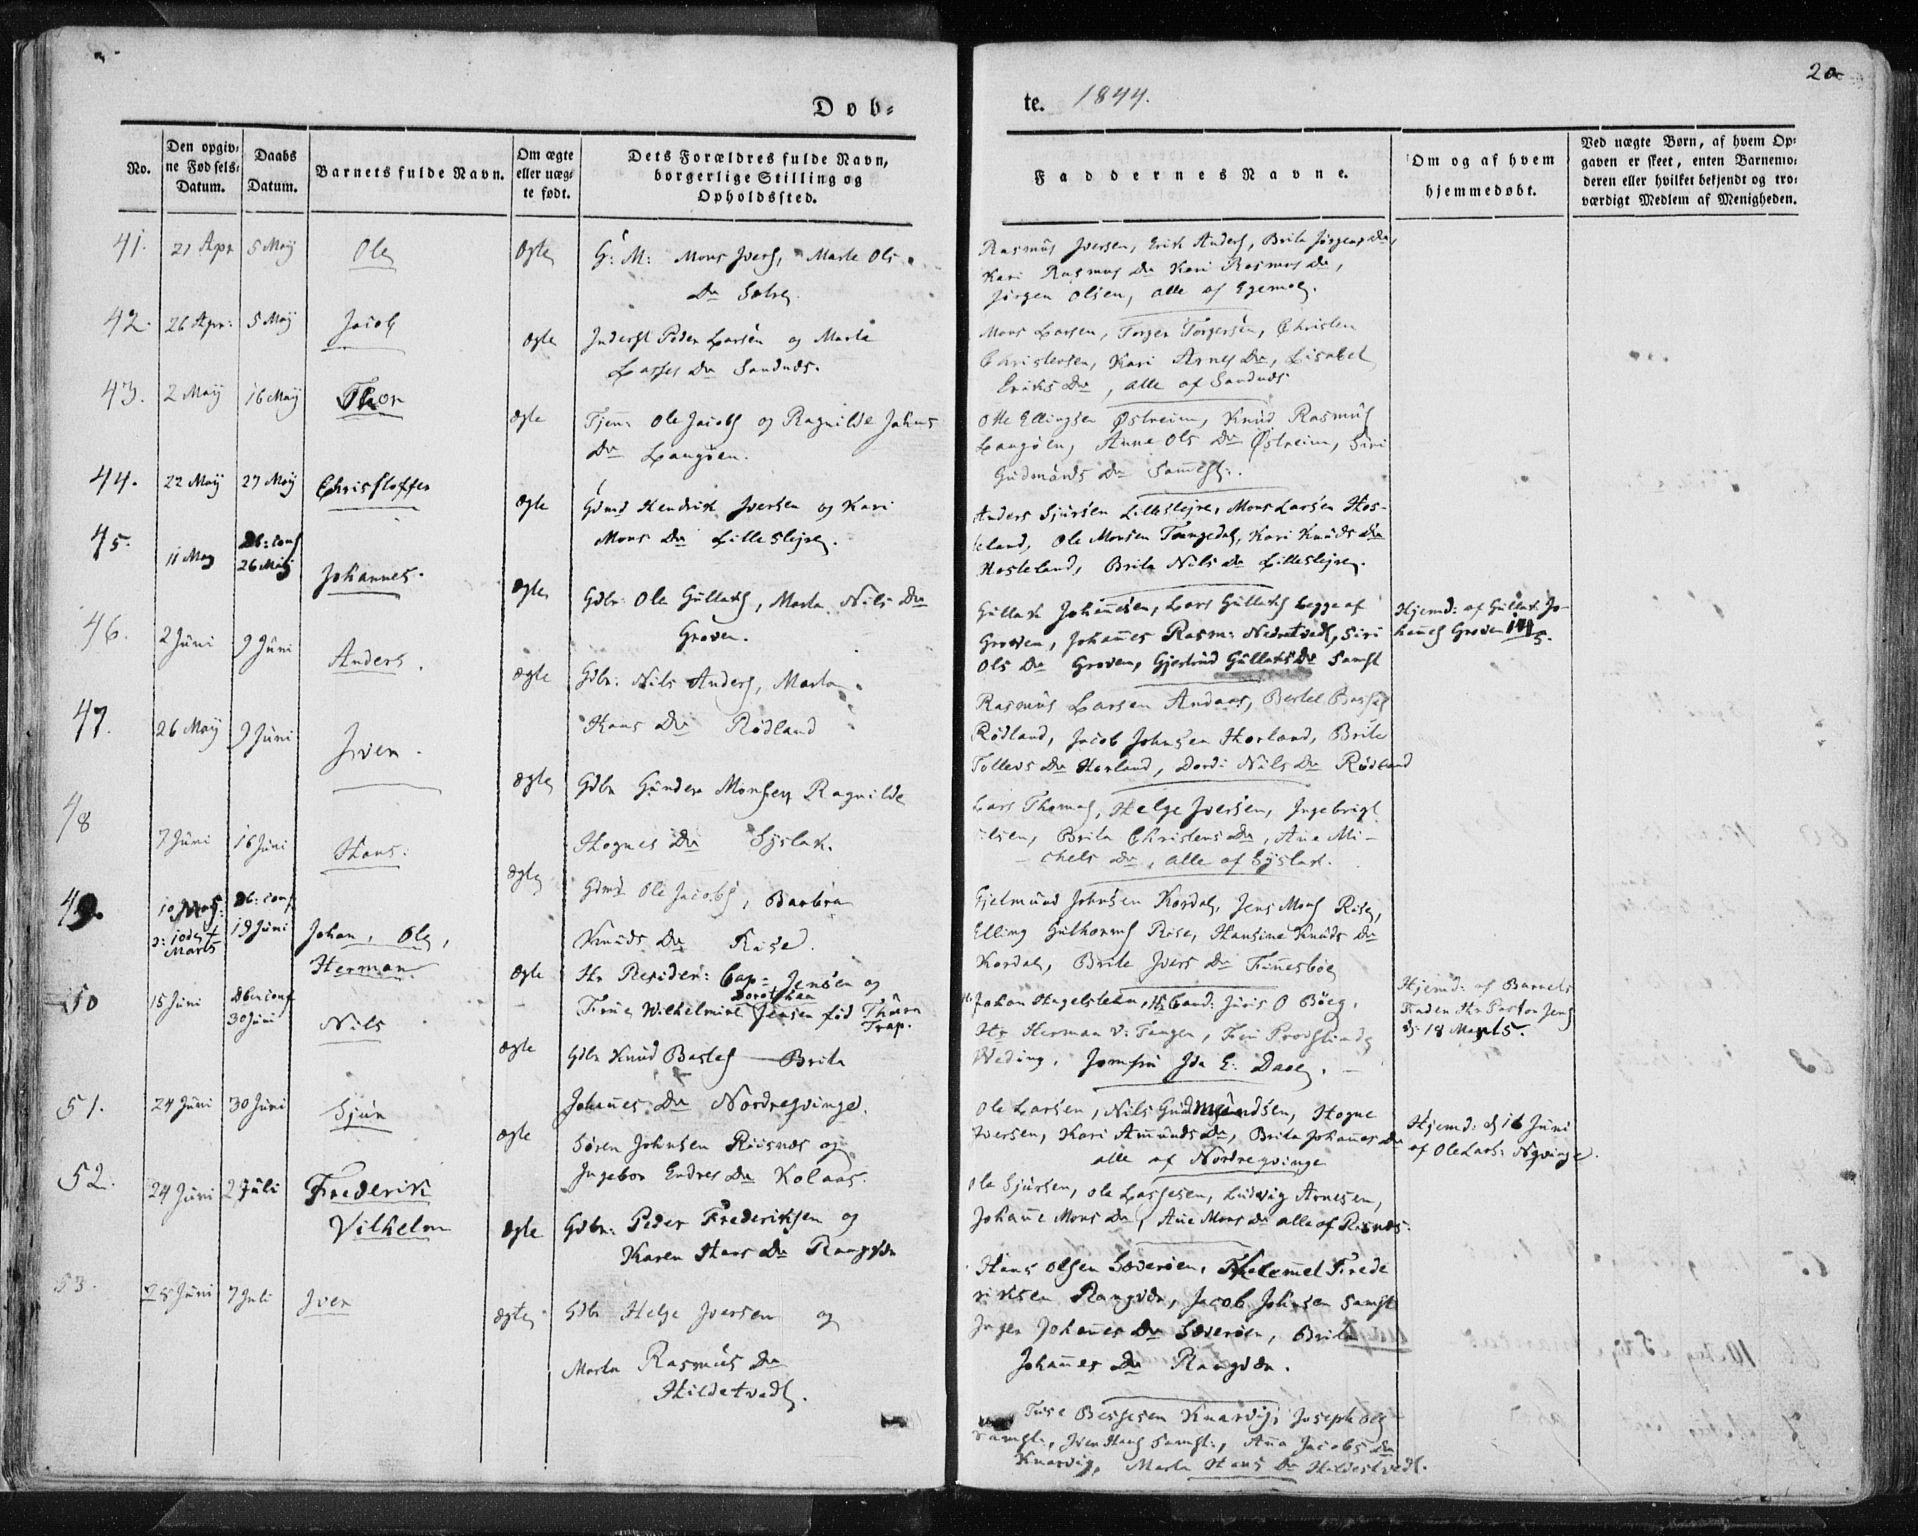 Døb=
No.
Den opgiv=
ne Fødsels=
Datum.
Daabs
Datum.
Barnets fulde Navn.
Om ægte
eller uæg=
te født.
Dets Forældres fulde Navn,
borgerlige Stilling og
Opholdssted.
41. 21 Apr 5 Maij Ole Ægte G: M: Mons Ivers, Marte Ols
Dr
42. 26 Apr: 5 Maij Jacob Ægte Inderst Peder Larsen og Marta
Lasses Dr Sandnæs.
43. 2 Maij 16 Maij Thor Ægte Tjen: Ole Jacobs og Ragnilde Johns
Dr Langøen.
44. 22 Maij 27 Maij Christoffer Ægte Gdmd Hendrik Iversen og Kari
Mons Dr Lilleslejre.
45. 11 May Db: conf
26 Maij Johannes. Ægte Gdbr Ole Gullaks, Marta Nils Dr
Groven.
46. 2 Juni 9 Juni Anders. Ægte Gdbr: Nils Anders, Marta
Hans Dr Rødland
47. 26 Maij 9 Juni Iver. Ægte Gdbr Gunder Monsen Ragnilde
Hognes Dr Syslak.
48 7 Juni 16 Juni Hans. Ægte Gdmd Ole Jacobs, Barbra
Knuds Dr Rise.
49. 10
o: 10de
Marts Db: conf
19 Juni Johan, Ole,
Herman Ægte Hr Residen: Cap: Jensen og
Frue Wilhelmine Dorothea Jensen fød Thurn
Trap.
50 15 Juni Dben conf
30 Juni Nils Ægte Gdbr Knud Bastes Brita
Johannes Dr Nordregvinge.
51. 24 Juni 30 Juni Sjur Ægte Søren Johnsen Risnæs og
Ingebor Endres Dr Kolaas.
52. 24 Juni 2 Juli Frederik
Vilhelm Ægte Gdbr: Peder Frederiksen og
Karen Hans Dr
53. 28 Juni 7 Juli Iver Ægte Gdbr Helge Iversen og
Marta Rasmus Dr
Hildetvedt.
te. 1844.
20
Faddernes Navne.
Om og af hvem
hjemmedøbt.
Ved uægte Børn, af hvem Op=
gaven er skeet, enten Barnemo=
deren eller hvilket bekjendt og tro=
værdigt Medlem af Menigheden.
Rasmus Iversen, Erik Anders, Brita Jørgens Dr,
Kari Rasmus Dr Kari Rasmus Dr,
Jørgen Olsen, alle af
Mons Larsen, Torger Torgersen, Christen
Christensen, Kari Arnes Dr, Lisabet
Eriks Dr, alle af Sandnæs
Otte Ellingsen Østreim, Knud Rasmus
Langøen, Anne Ols Dr Østreim, Siri
Gudmunds Dr Samest:
Anders Sjursen Lilleslejre, Mons Larsen Hos-
teland, Ole Monsen Tangedal, Kari Knuds Dr
Hosteland, Brita Nils Dr Lilleslejre.
Gullak Johannsen, Lars Gullaks begge af
Groven, Johannes Rasm: Nedretvedt, Siri
Ols Dr Groven, Gjertrud Gullaks Dr Samst
Hjemd: af Gullak Jo-
hannes Groven
Rasmus Larsen Andaas, Bertel
Rødland, Jacob Johnsen Horland, Brite
Tollevs Dr Horland, Dordi Nils Dr Rødland
Lars Thomas, Helge Iversen, Ingebrigt
Olsen, Brita Christens Dr, Ane Mi-
chels Dr, alle af Syslak.
Gjelmund Johnsen Kordal, Jens Mons Rise,
Elling Guthorms Rise, Hansine Knuds Dr
Kordal, Brite Ivers Dr Finnesbøe
Johan Hagelsteen, Hr Cand: Juris O Bøeg,
Hr Herman v: Tangen, Frue Provstinde
Weding, Jomfru Ida E: Daae.
Hjemd: af Barnets
Fader Hr Pastor Jens
d: 18 Marts.
Ole Larsen, Nils Gudmundsen, Hogne
Iversen, Kari Amunds Dr, Brita Johannes Dr
alle af Nordregvinge
Hjemd: d 16 Juni
af Ole Lars: Ngvinge.
Ole Sjursen, Ole Lassesen, Ludvig Arnesen,
Johanne Mons Dr, Ane Mons Dr alle af Risnæs.
Hans Olsen Soderøen, Frede
riksen, Jacob Johnsen Samst
Inger Johannes Dr Soderøen, Brita
Johannes Dr
Knarvig, Joseph Ols
Samst:, Iver Hans Samst:, Ana Jacobs Dr
Knarvig, Marta Hans Dr Hildestvedt.